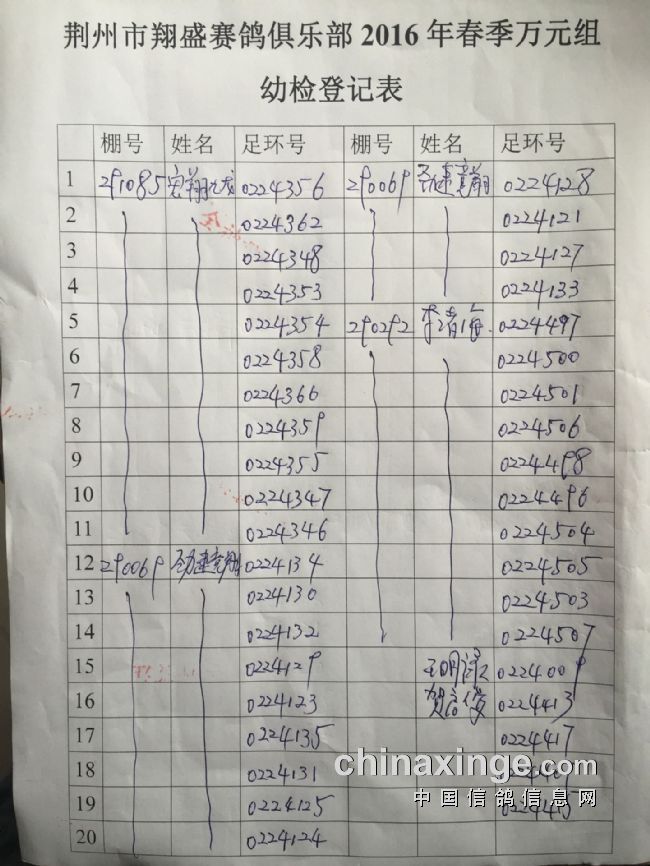 荆州市翔盛赛鸽俱乐部 2016 年春季万元组
幼检登记表
棚号 姓名 足环号 棚号 姓名 足环号
1 291085 宏翔九龙 0224356 290069 劲速竞翔 0224128
2 0224362 0224121
3 0224348 0224127
4 0224353 0224133
5 0224354 290292 李清海 0224497
6 0224358 0224500
7 0224366 0224501
8 0224359 0224506
9 0224355 0224498
10 0224347 0224496
11 0224346 0224504
12 290069 劲速竞翔 0224134 0224505
13 0224130 0224503
14 0224132 0224507
15 0224129 0224009
16 0224123 贺信俊 0224413
17 0224135 0224417
18 0224131
19 0224125 0224415
20 0224124
chinaxinge.com
中国信鸽信息网